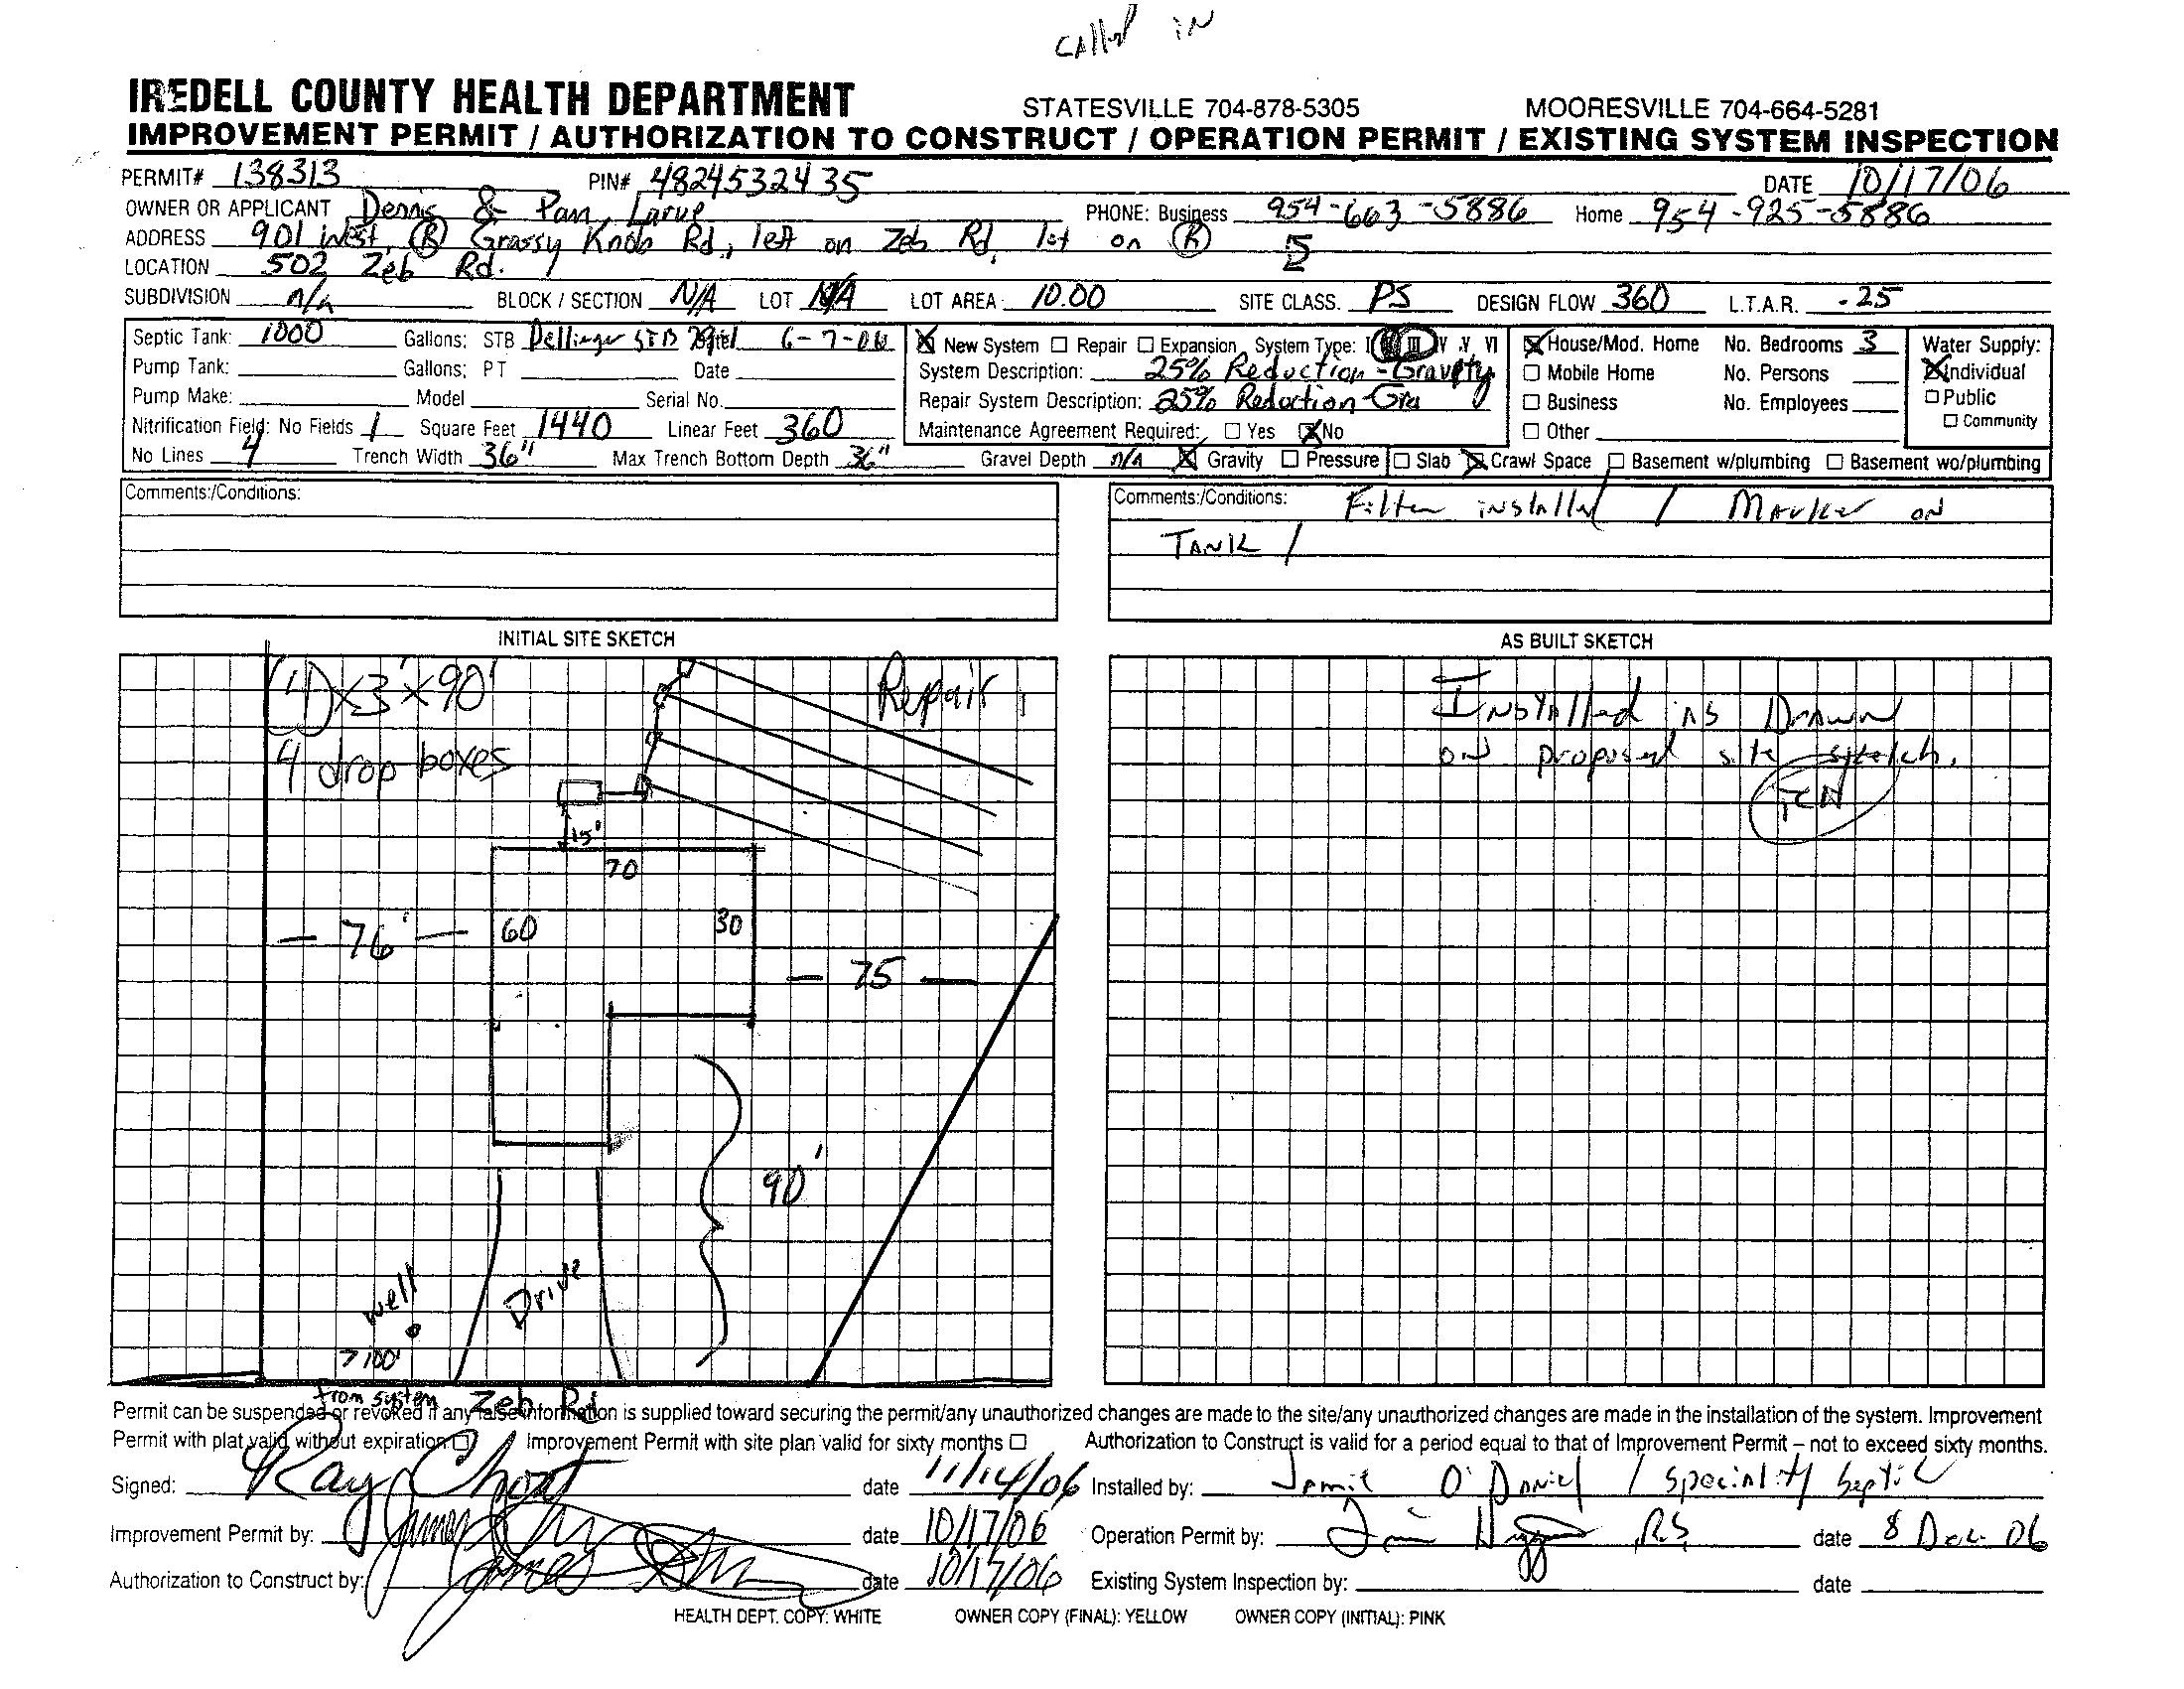 CAlled iN
IREDELL COUNTY HEALTH DEPARTMENT STATESVILLE 704-878-5305 MOORESVILLE 704-664-5281
IMPROVEMENT PERMIT / AUTHORIZATION TO CONSTRUCT / OPERATION PERMIT / EXISTING SYSTEM INSPECTION
PERMIT# 138313 PIN# 4824532435 DATE 10/17/06
OWNER OR APPLICANT Dennis & Pam Larue PHONE: Business 954-663-5886 Home 954-925-5886
ADDRESS 901 West, (R) Grassy Knob Rd, left on Zeb Rd, lot on (R) 5
LOCATION 502 Zeb Rd.
SUBDIVISION n/a BLOCK / SECTION N/A LOT N/A LOT AREA 10.00 SITE CLASS. PS DESIGN FLOW 360 L.T.A.R. .25
Septic Tank: 1000 Gallons: STB Dellinger STB 6-7-06 New System Repair Expansion System Type: I III V VI House/Mod. Home No. Bedrooms 3 Water Supply:
Pump Tank: Gallons: PT Date System Description: 25% Reduction - Gravity Mobile Home No. Persons Individual
Pump Make: Model Serial No. Repair System Description: 25% Reduction Gra Business No. Employees Public
Nitrification Field: No Fields 1 Square Feet 1440 Linear Feet 360 Maintenance Agreement Required: Yes No Other Community
No Lines 4 Trench Width 36" Max Trench Bottom Depth 36" Gravel Depth n/a Gravity Pressure Slab Crawl Space Basement w/plumbing Basement wo/plumbing
Comments:/Conditions:
Comments:/Conditions: Filter iNstalled / Marker oN
TANK /
INITIAL SITE SKETCH
(4) x 3' x 90'
Repair
4 drop boxes
15'
70
- 76' - 60 30
- 75 -
90'
well
Drive
>100'
from system Zeb Rd
AS BUILT SKETCH
INstAlled As DrAwn
oN proposed site sketch.
Permit can be suspended or revoked if any false information is supplied toward securing the permit/any unauthorized changes are made to the site/any unauthorized changes are made in the installation of the system. Improvement
Permit with plat valid without expiration Improvement Permit with site plan valid for sixty months Authorization to Construct is valid for a period equal to that of Improvement Permit – not to exceed sixty months.
Signed: Ray Choat date 11/14/06 Installed by: Jamie O'Daniel / Speciality Septic
Improvement Permit by: James date 10/17/06 Operation Permit by: RS date 8 Dec 06
Authorization to Construct by: James date 10/17/06 Existing System Inspection by: date
HEALTH DEPT. COPY: WHITE OWNER COPY (FINAL): YELLOW OWNER COPY (INITIAL): PINK